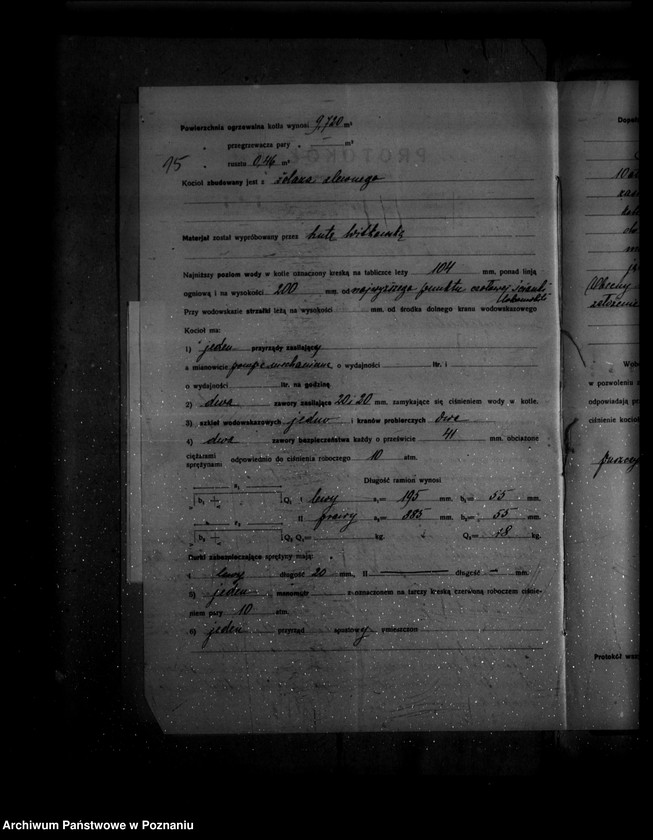 Powierzchnia ogrzewalna kotła wynosi 9,720 m²
„ przegrzewacza pary „ — m²
15 „ rusztu 0,46 m²
Kocioł zbudowany jest z żelaza zlewnego
Materjał został wypróbowany przez hutę
Najniższy poziom wody w kotle oznaczony kreską na tabliczce leży 104 mm. ponad linją
ogniową i na wysokości 200 mm. od najwyższego punktu czołowej ścianki
Przy wodowskazie strzałki leżą na wysokości mm. od środka dolnego kranu wodowskazowego
Kocioł ma:
1) jeden przyrządy zasilający
a mianowicie pompę mechaniczną o wydajności ltr. i
o wydajności ltr. na godzinę
2) dwa zawory zasilające 20 i 20 mm. zamykające się ciśnieniem wody w kotle.
3) szkieł wodowskazowych jedno i kranów probierczych dwa
4) dwa zawory bezpieczeństwa każdy o prześwicie 41 mm. obciążone
ciężarami
sprężynami odpowiednio do ciśnienia roboczego 10 atm.
Długość ramion wynosi
I lewy a₁= 195 mm. b₁= 55 mm.
II prawy a₂= 385 mm. b₂= 55 mm.
Q₁= kg. Q₂= kg.
Rurki zabezpieczające sprężyny mają:
I lewy długość 20 mm., II — długość — mm.
5) jeden manometr z oznaczonem na tarczy kreską czerwoną roboczem ciśnie-
niem pary 10 atm.
6) jeden przyrząd spustowy umieszczono
Dopeł
10
Wob
w pozwoleniu z
odpowiadają pr
ciśnienie kocioł
Protokół wzo
Archiwum Państwowe w Poznaniu